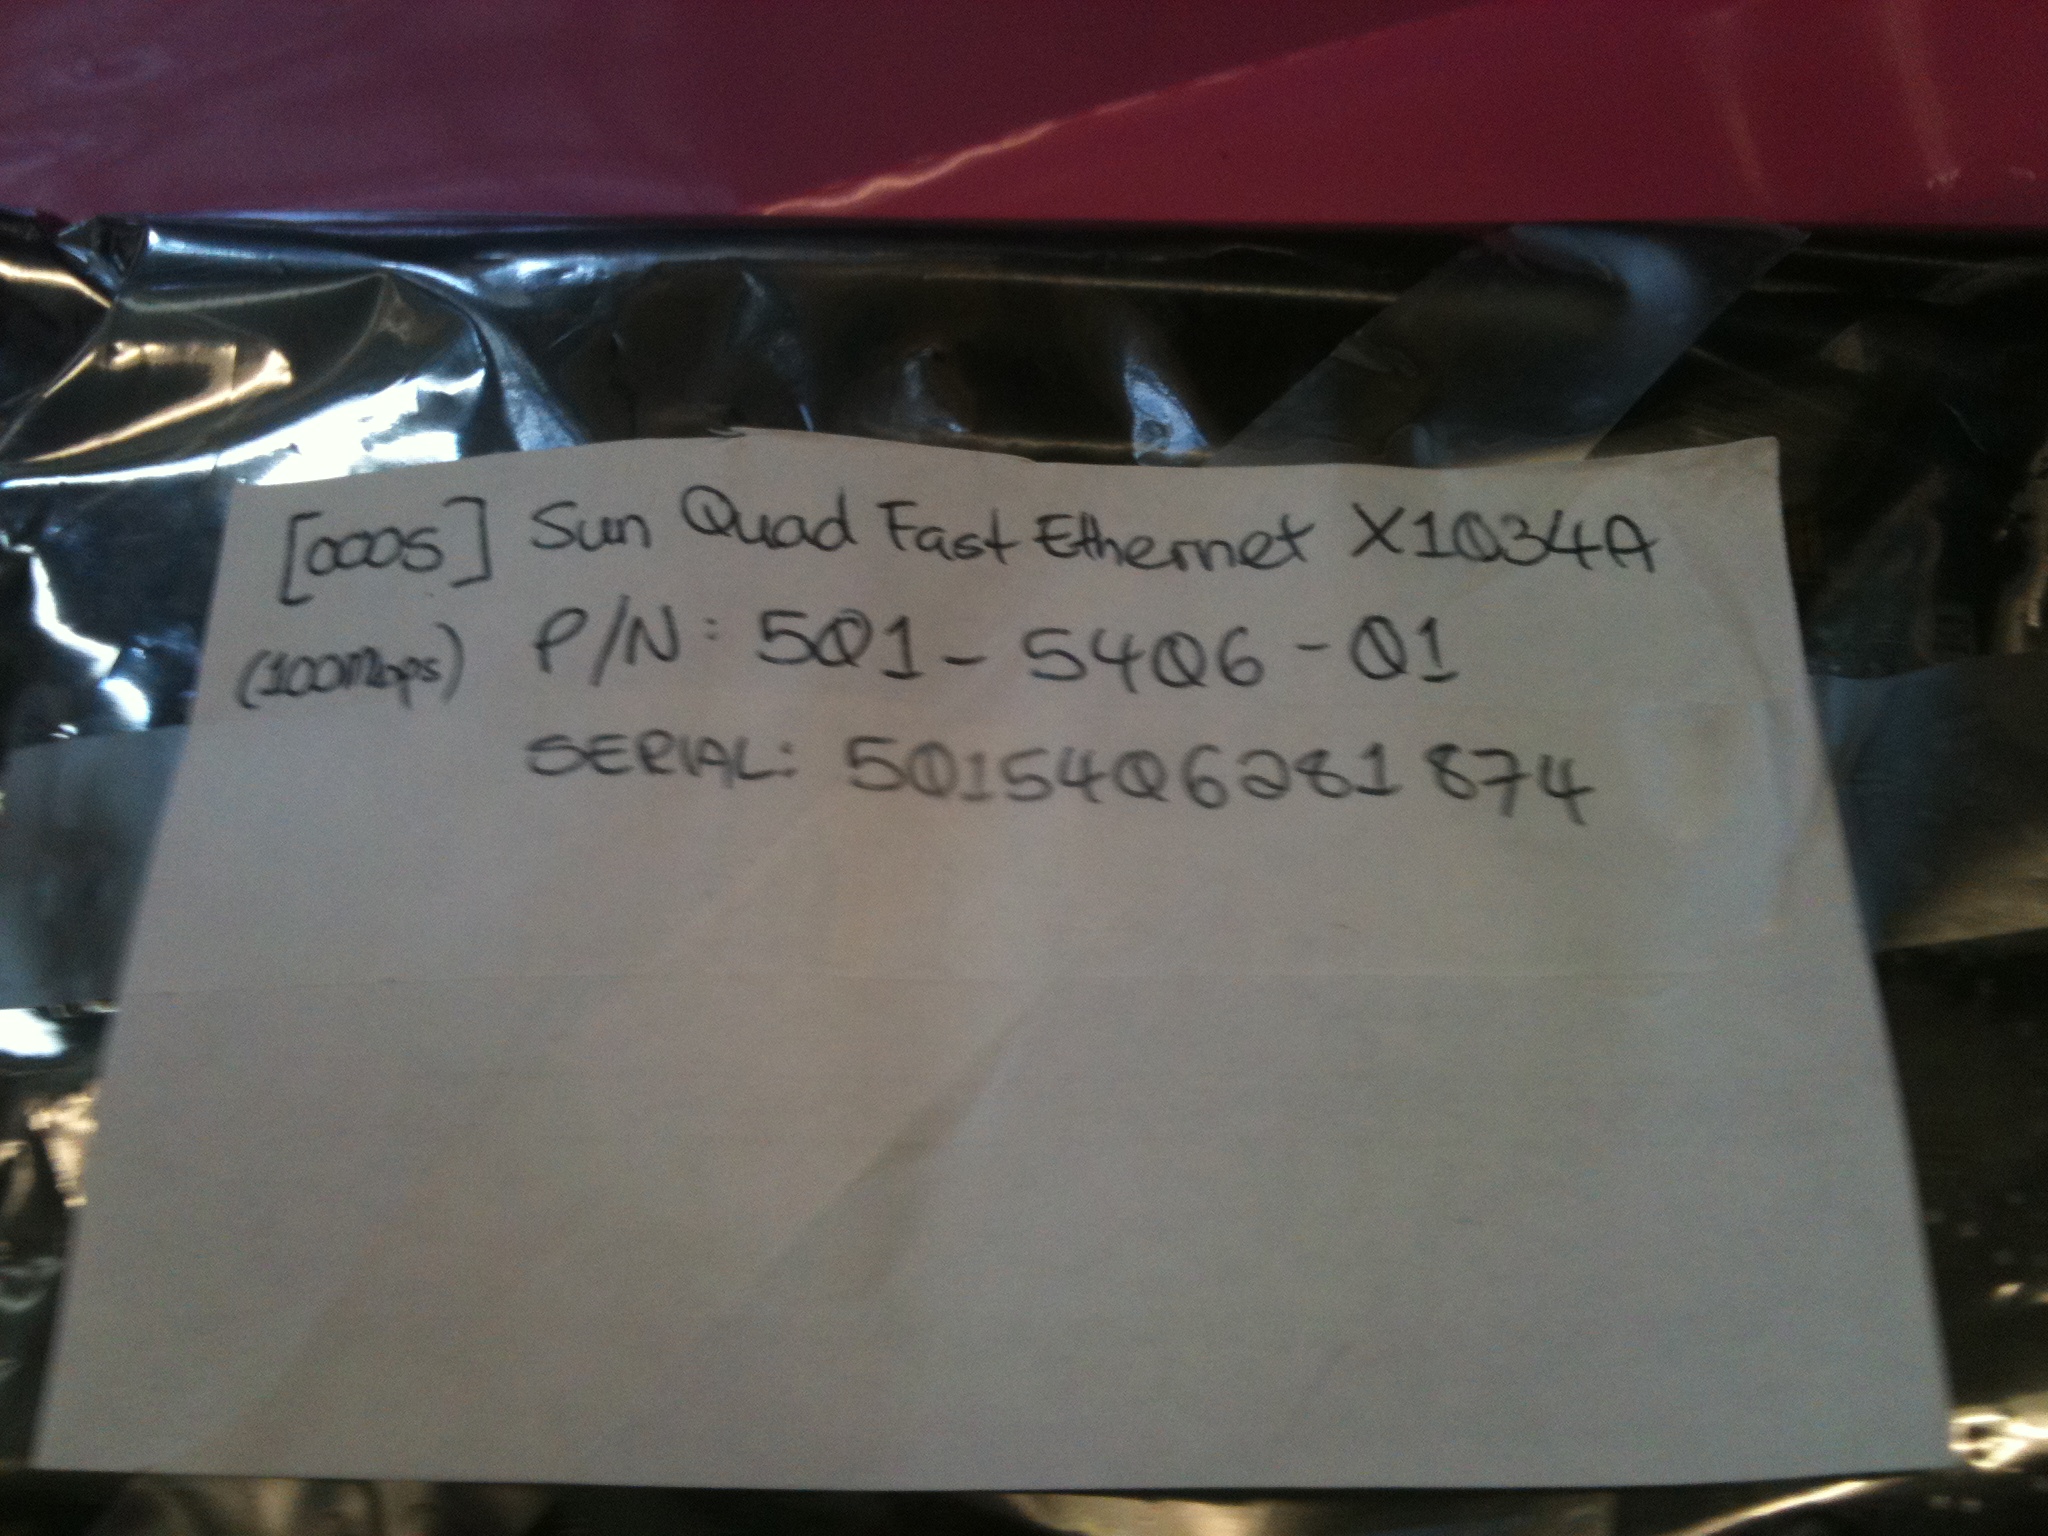 [0005] Sun Quad Fast Ethernet X1034A
(100Mbps) P/N: 501-5406-01
SERIAL: 5015406281874